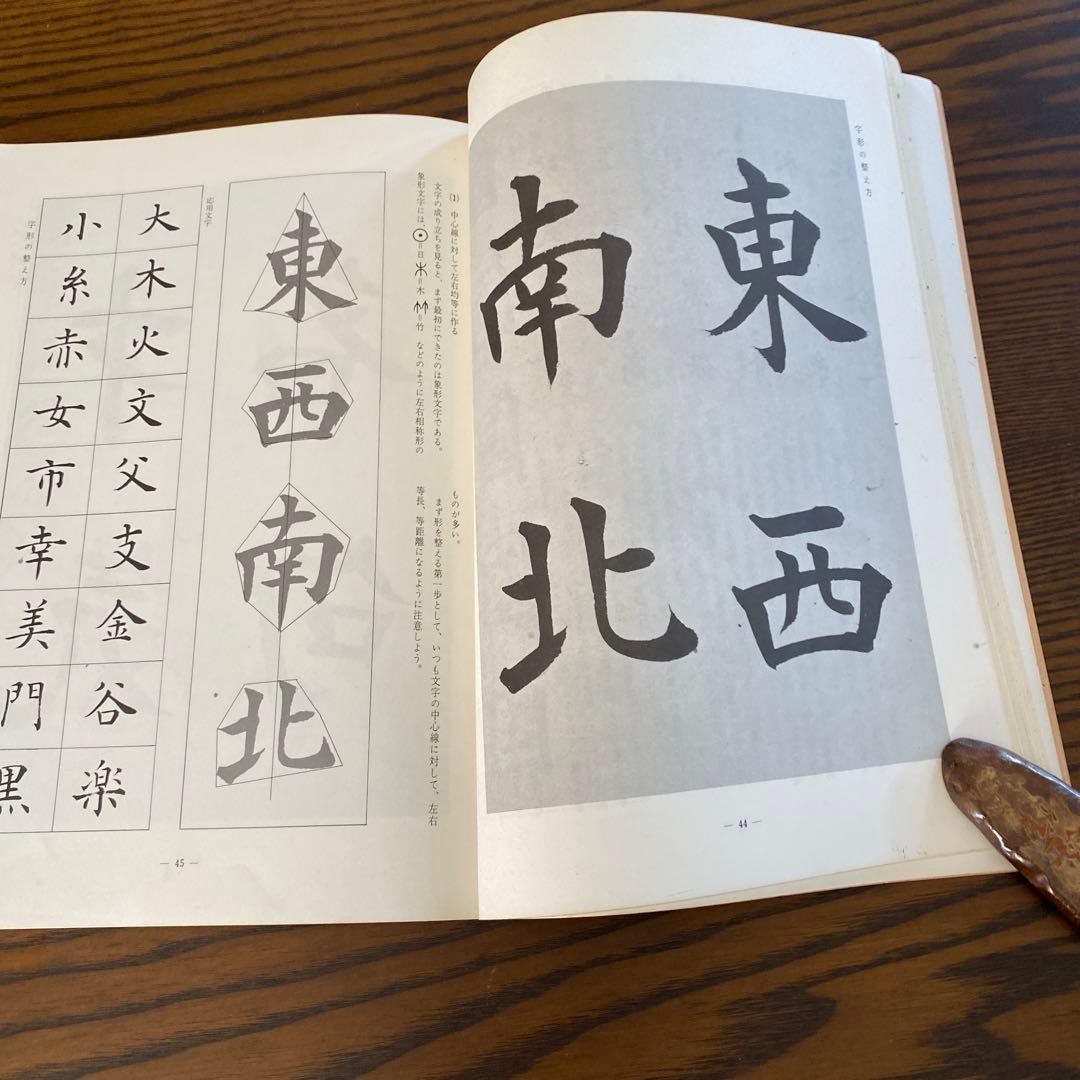 字形の整え方
東西
南北
— 44 —
(1) 中心線に対して左右均等に作る
文字の成り立ちを見ると、まず最初にできたのは象形文字である。
象形文字には、=日 =木 =竹 などのように左右相称形の
ものが多い。
まず形を整える第一歩として、いつも文字の中心線に対して、左右
等長、等距離になるように注意しよう。
東西南北
応用文字
大木火文父支金谷楽
小糸赤女市幸美門黒
字形の整え方
— 45 —